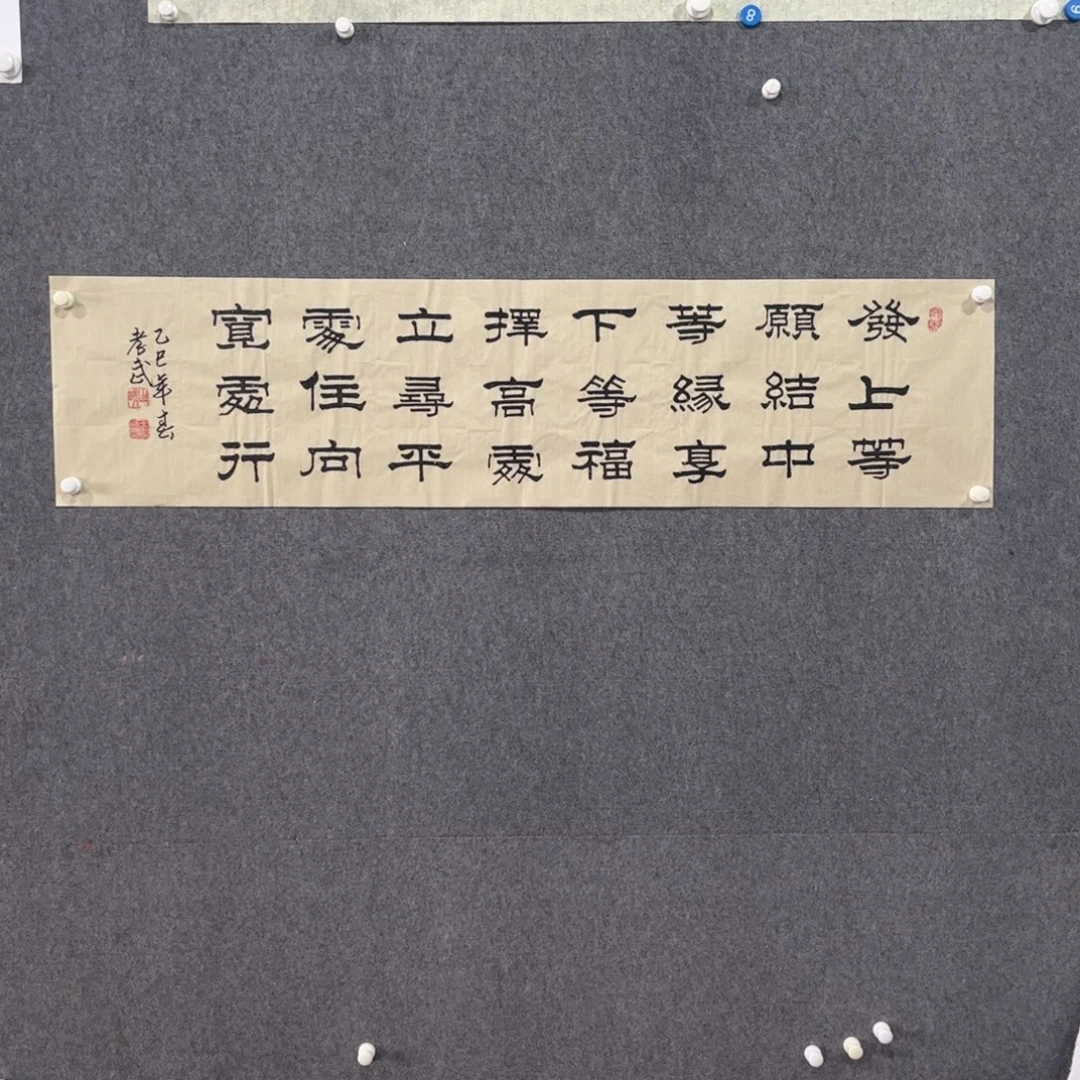 發上等
願結中
等緣享
下等福
擇高處
立尋平
處住向
寬處行
乙巳年春
孝武
8